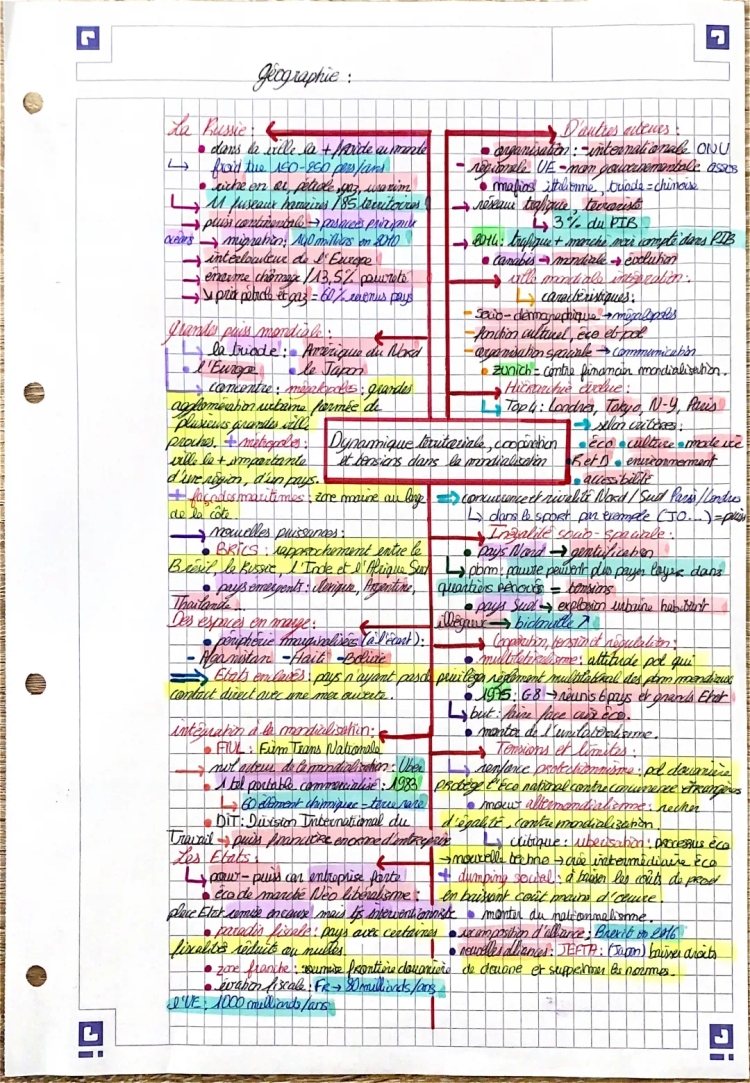 Géographie :
La Russie :
• dans la ville la + froide au monde
froid tue 150-250 pers/ans
• riche en or, pétrole, gaz, uranium
11 fuseaux horaires / 85 territoires
puiss continentale → pas accès principaux
océans → migration : 140 millions en 2010
→ interlocuteur de l'Europe
→ énorme chômage / 13,5% pauvreté
→ ↘ prix pétrole et gaz = 60% revenus pays
Grandes puiss mondiale :
la triade : • Amérique du Nord
• l'Europe • le Japon
concentre : mégalopoles : grandes
agglomération urbaine formée de
plusieurs grandes ville
proches. + métropoles :
ville la + importante
d'une région, d'un pays.
+ façades maritimes : zone marine au large
de la côte
→ nouvelles puissances :
• BRICS : rapprochement entre le
Brésil la Russie l'Inde et l'Afrique Sud
• pays émergents : Mexique, Argentine,
Thaïlande...
Des espaces en marge :
• périphérie marginalisées (à l'écart) :
- Afganistan - Haïti - Bolivie
⇒ Etats enclavés : pays n'ayant pas de
contact direct avec une mer ouverte.
intégration à la mondialisation :
• FTN : Firm Trans Nationale
→ nvl acteur de la mondialisation : Uber
• 1 tel portable commercialisé : 1983
60 élément chimique - terre rare
• DIT : Division International du
Travail → puiss financière énorme d'entreprise
Les Etats :
pour - puiss car entreprise forte
• éco de marché Néo libéralisme :
place Etat remise en cause mais tjs interventionniste
• paradis fiscale : pays avec certaines
fiscalités réduits ou nulles
• zone franche : soumise frontière douanière
• évasion fiscale : FR → 80 milliards/ans
l'UE : 1000 milliards/ans
Dynamique territoriale, coopération
et tensions dans la mondialisation
D'autres acteurs :
• organisation : - internationale ONU
- régionale UE - non gouvernementale assos
• mafias italienne, triade = chinoise
→ réseau trafique, terroriste
3% du PIB
→ 2014 : trafique + marché noir compté dans PIB
• canabis → mondiale → évolution
ville mondiale intégration :
caractéristiques :
- socio-démographique → mégalopoles
- fonction culturel, éco et pol
- organisation spaciale → communication
• zurich = contre finencian mondialisation.
Hiérarchie évolue :
Top 4 : Londres, Tokyo, N-Y, Paris
→ selon critères :
• éco • culture • mode vie
• R et D • environnement
• accessibilité
⇒ concurrence et rivalité Nord / Sud Paris/Londres
dans le sport par exemple (JO...) = puiss
Inégalité socio-spaciale :
• pays Nord → gentrification
pbm : pauvre peuvent plus payer loyers dans
quartiers rénovés = tensions
• pays Sud → explosion urbaine habitent
illégaux → bidonville ↗
Coopération, tension et régulation :
• multilatéralisme : attitude pol qui
privilégie règlement multilatéral des pbm mondiaux
• 1975 : G8 → réunis 6 pays et grands Etat
but : faire face aux éco.
• montée de l'unilatéralisme.
Tensions et limites :
renforce protectionnisme : pol douanière
protège l'éco national contre concurrence étrangères
• mouv altermondialisme : recher
d'égalité, contre mondialization.
critique : ubérisation : processus éco
→ nouvelle techno → crée intermédiaire éco
+ dumping social : à baisser les coûts de prod
en baissant coût main d'œuvre.
• monter du nationnalisme.
• recomposition d'alliance : Brexit en 2016
• nouvelles alliances : JEFTA : (Japon) baisser droits
de douane et supprimer les normes.